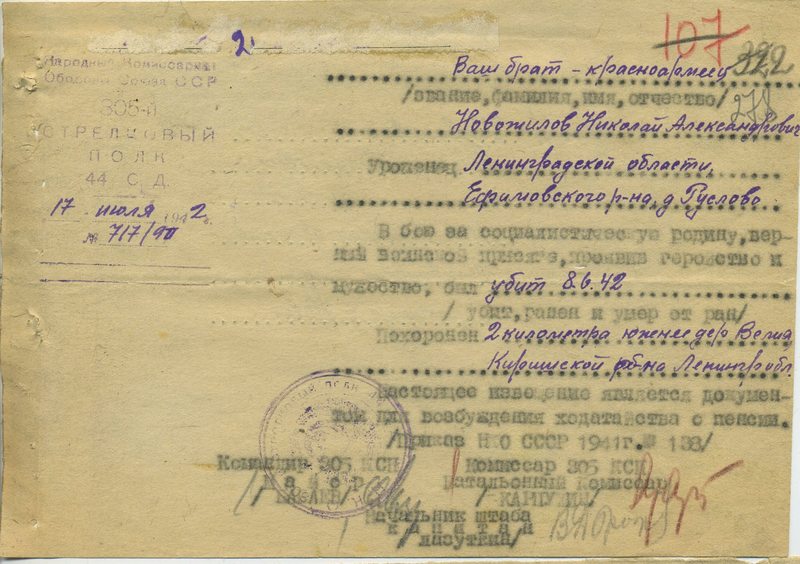 2
107
322
278
Народный Комиссариат
Обороны Союза ССР
305-й
СТРЕЛКОВЫЙ
ПОЛК
44 С.Д.
17 июля 1942 г.
№ 717/90
Ваш брат - красноармеец
/звание, фамилия, имя, отчество/
Новожилов Николай Александрович
Уроженец Ленинградской области,
Ефимовского р-на, д. Гуслово
В бою за социалистическую родину, вер-
ный воинской присяге, проявив геройство и
мужество, был убит 8.6.42
/ убит, ранен и умер от ран/
Похоронен 2 километра южнее дер Велия
Киришской р-на Ленингр обл.
Настоящее извещение является докумен-
том для возбуждения ходатайства о пенсии.
/Приказ НКО СССР 1941 г. № 138/
Командир 305 КСП
Майор
Комиссар 305 КСП
Батальонный Комиссар
/КАРГУЛИН/
Начальник штаба
капитан
/Лазуткин/